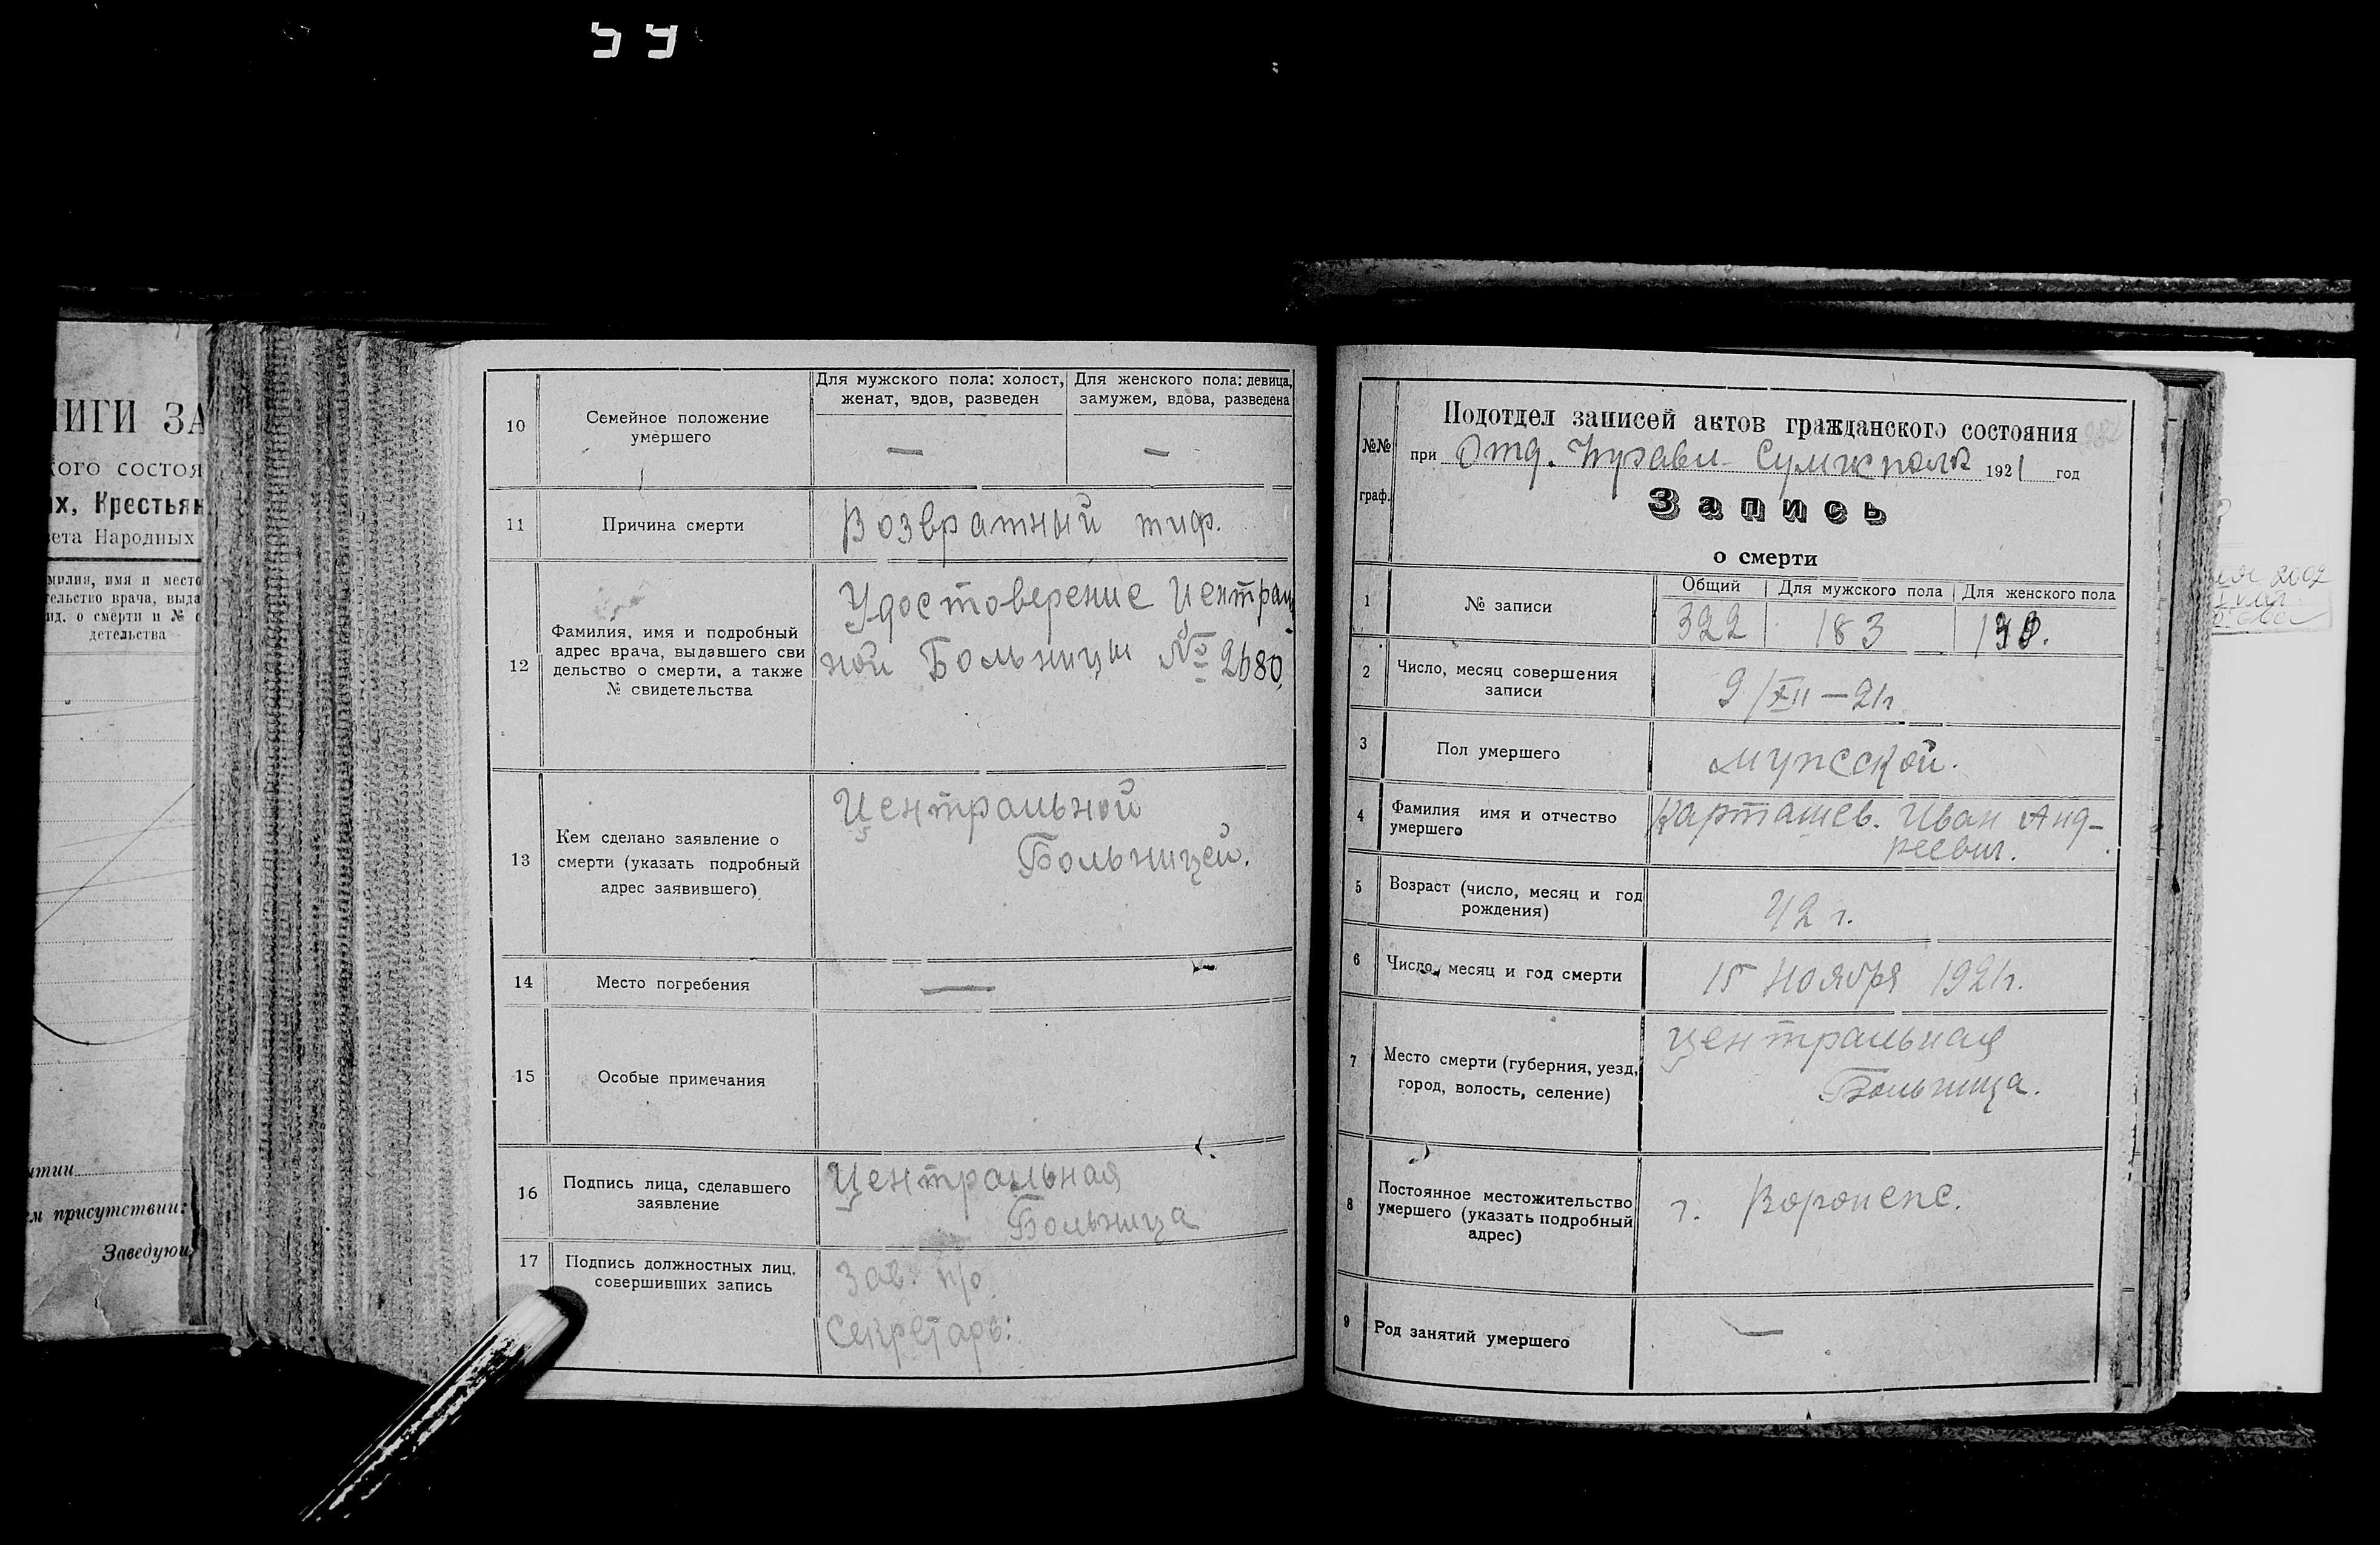 ИГИ ЗА
кого состоя
х, Крестьян
ета Народных
милия, имя и место
тельство врача, выда
ид. о смерти и №
детельства
тии
м присутствии:
Заведую
10
Семейное положение
умершего
Для мужского пола: холост,
женат, вдов, разведен
Для женского пола: девица,
замужем, вдова, разведена
— —
11
Причина смерти
Возвратный тиф.
12
Фамилия, имя и подробный
адрес врача, выдавшего сви
дельство о смерти, а также
№ свидетельства
Удостоверение Централь
ной Больницы № 2680
13
Кем сделано заявление о
смерти (указать подробный
адрес заявившего)
Центральной
Больницей.
14
Место погребения
—
15
Особые примечания
16
Подпись лица, сделавшего
заявление
Центральная
Больница
17
Подпись должностных лиц,
совершивших запись
Зав. п/о
Секретарь:
№№
граф.
Подотдел записей актов гражданского состояния
при Отд. Управл. 1921 год
Запись
о смерти
1
№ записи
Общий Для мужского пола Для женского пола
322 183
2
Число, месяц совершения
записи
9/XII—21г.
3
Пол умершего
мужской.
4
Фамилия имя и отчество
умершего
Карташев. Иван Анд-
реевич.
5
Возраст (число, месяц и год
рождения)
42 г.
6
Число, месяц и год смерти
15 ноября 1921г.
7
Место смерти (губерния, уезд,
город, волость, селение)
Центральная
Больница.
8
Постоянное местожительство
умершего (указать подробный
адрес)
г. Воронеже.
9
Род занятий умершего
—